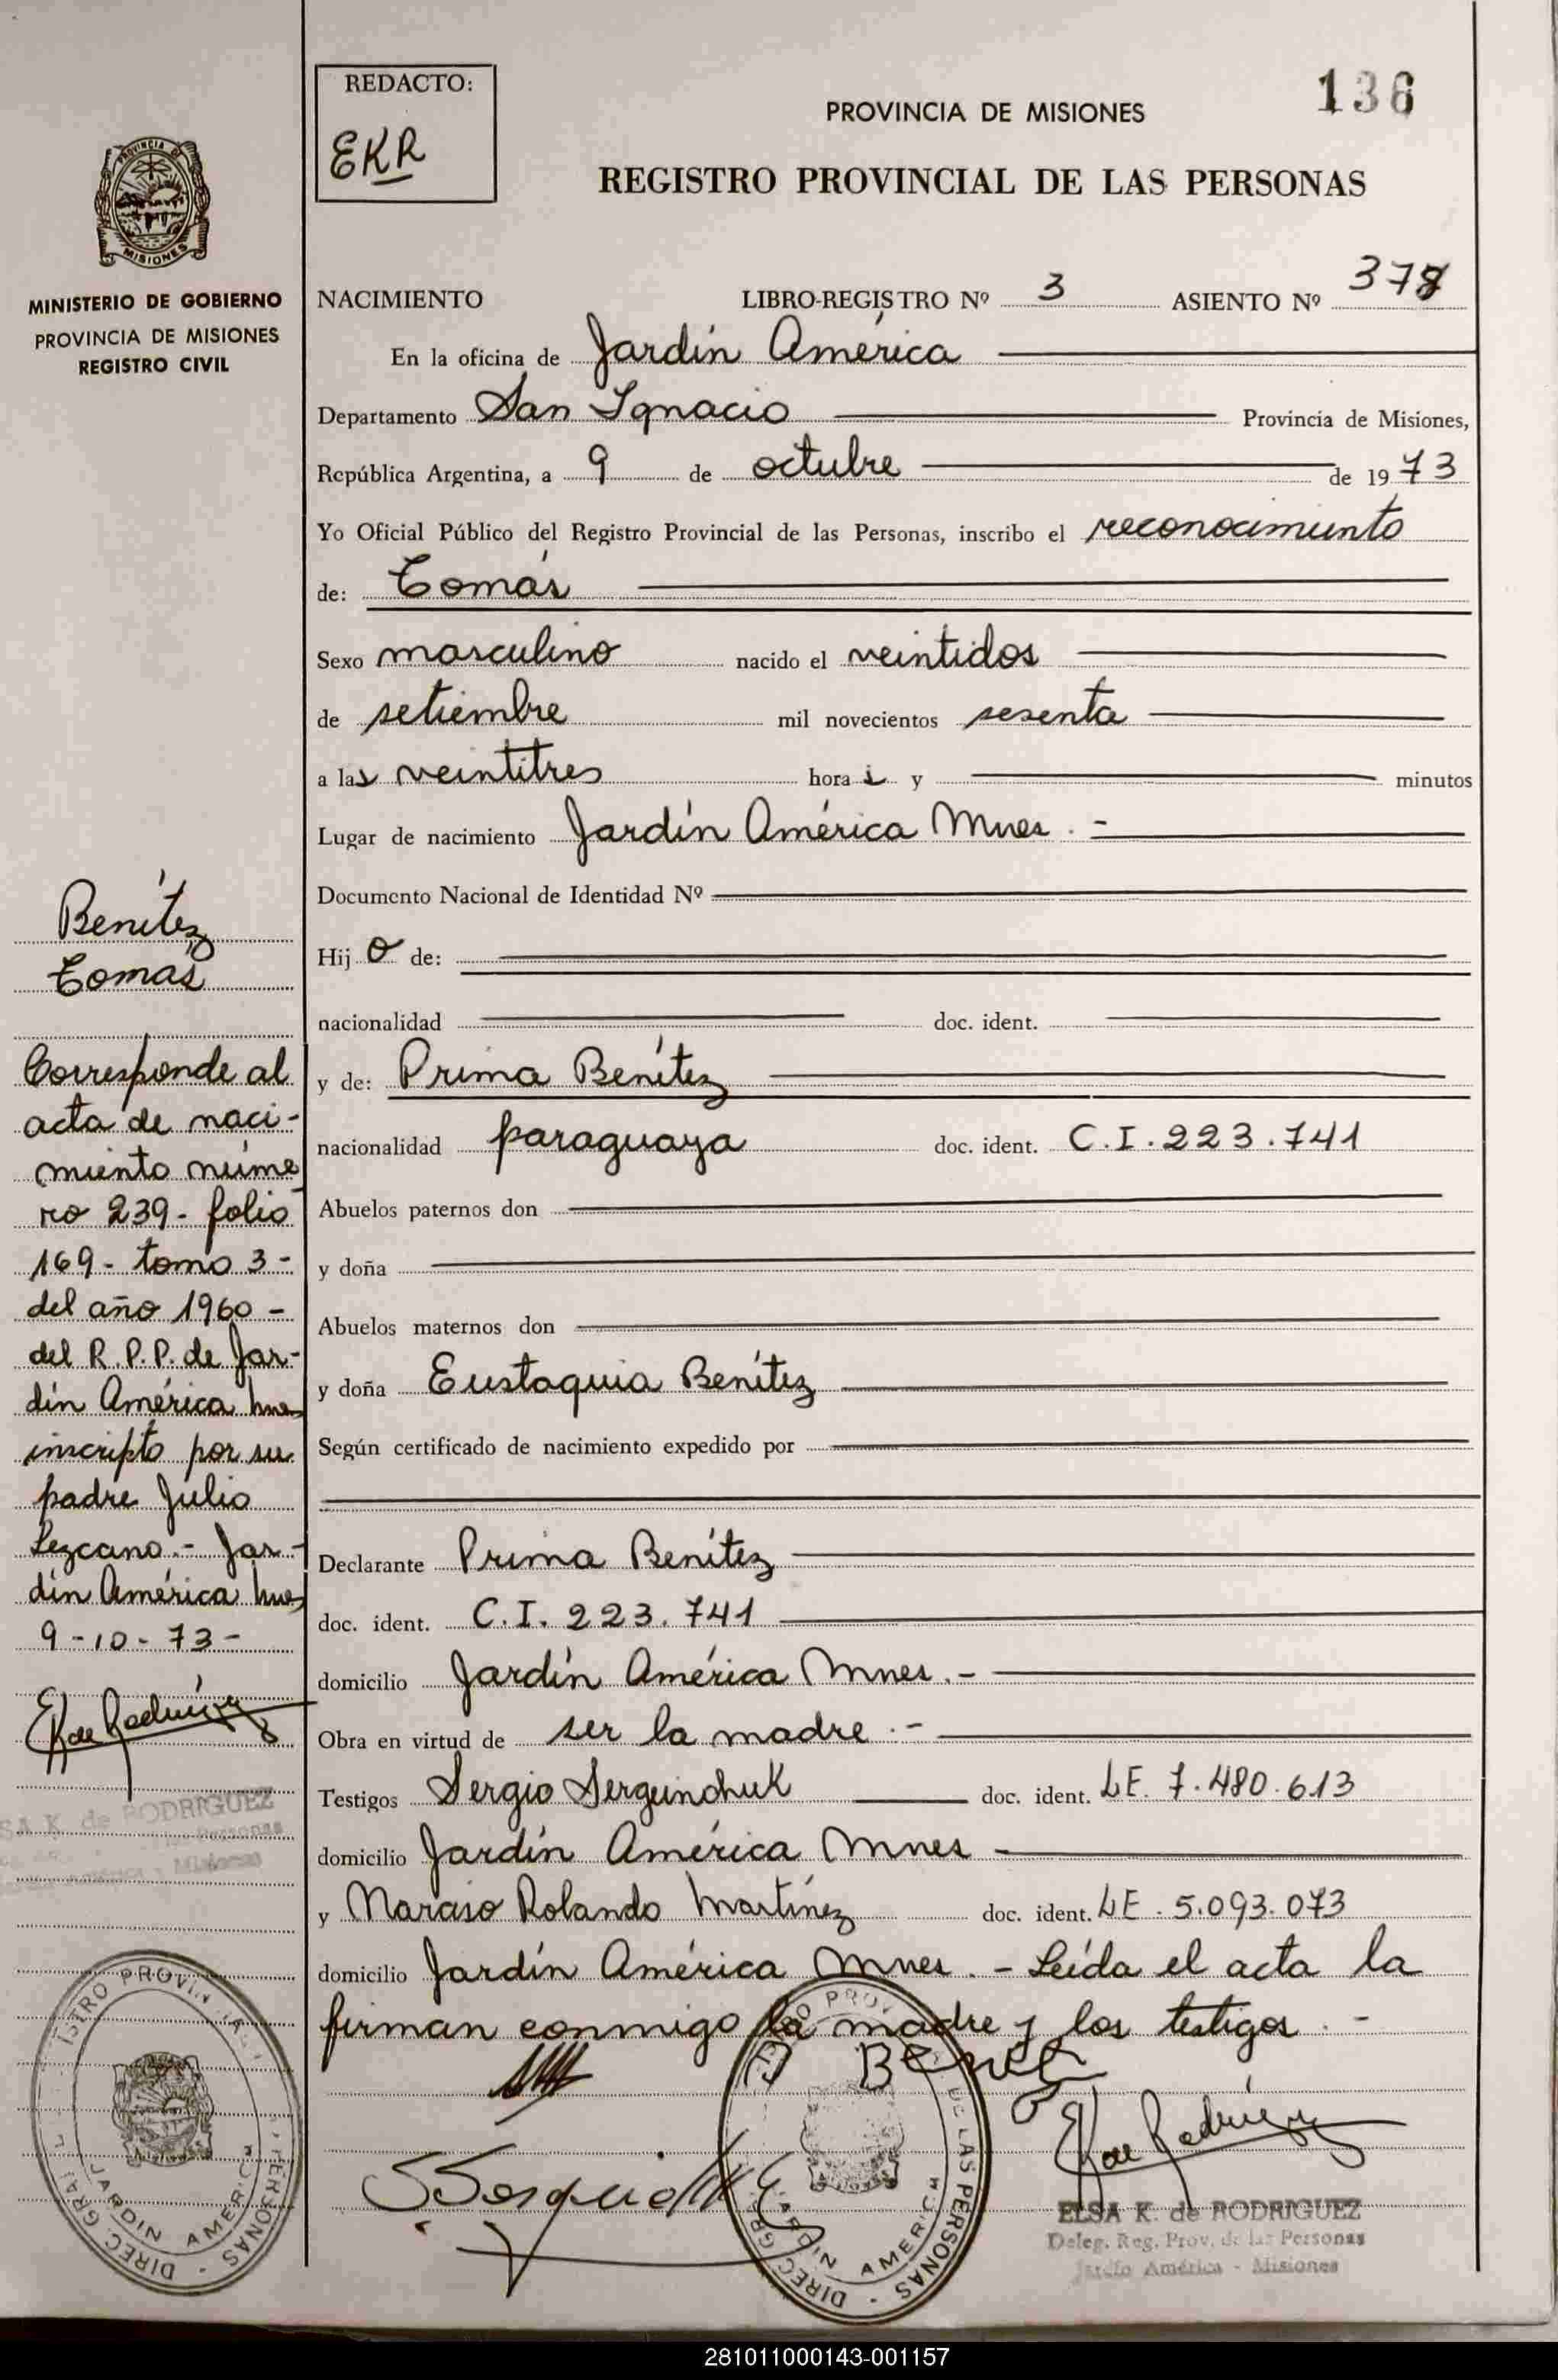 REDACTO:
EKR
PROVINCIA DE MISIONES
136
REGISTRO PROVINCIAL DE LAS PERSONAS
PROVINCIA DE
MISIONES
MINISTERIO DE GOBIERNO
PROVINCIA DE MISIONES
REGISTRO CIVIL
NACIMIENTO LIBRO-REGISTRO Nº 3 ASIENTO Nº 378
En la oficina de Jardín América
Departamento San Ignacio Provincia de Misiones,
República Argentina, a 9 de octubre de 1973
Yo Oficial Público del Registro Provincial de las Personas, inscribo el reconocimiento
de: Tomás
Sexo masculino nacido el veintidos
de setiembre mil novecientos sesenta
a las veintitres horas y minutos
Lugar de nacimiento Jardín América Mnes. -
Documento Nacional de Identidad Nº
Hijo de:
nacionalidad doc. ident.
y de: Prima Benítez
nacionalidad paraguaya doc. ident. C.I. 223.741
Abuelos paternos don
y doña
Abuelos maternos don
y doña Eustaquia Benítez
Según certificado de nacimiento expedido por
Declarante Prima Benítez
doc. ident. C.I. 223.741
domicilio Jardín América Mnes. -
Obra en virtud de ser la madre. -
Testigos Sergio Serguinchuk doc. ident. LE. 7.480.613
domicilio Jardín América Mnes -
y Narciso Rolando Martínez doc. ident. LE. 5.093.073
domicilio Jardín América Mnes. - Leída el acta la
firman conmigo la madre y los testigos. -
Benítez
Tomás
Corresponde al
acta de naci-
miento núme
ro 239 - folio
169 - tomo 3 -
del año 1960 -
del R.P.P. de Jar-
dín América Mnes
inscripto por su
padre Julio
Lezcano. - Jar-
dín América Mnes
9-10-73-
EK de Rodríguez
ELSA K. de RODRIGUEZ
EK de Rodríguez
ELSA K. de RODRIGUEZ
Deleg. Reg. Prov. de las Personas
Jardín América - Misiones
JARDIN AMERICA
JARDIN AMERICA
281011000143-001157